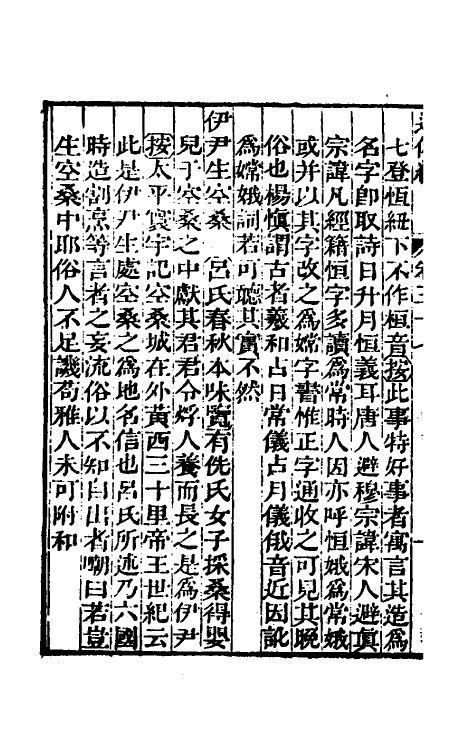 七登恆紐下不作桓音按此事特好事者寓言其造爲
名字卽取詩日升月恒義耳唐人避穆宗諱宋人避眞
宗諱凡經籍恒字多讀爲常時人因亦呼恒娥爲常娥
或并以其字改之爲嫦字書惟正字通收之可見其晚
俗也楊愼謂古者羲和占日常儀占月儀俄音近因訛
爲嫦娥詞若可聽其實不然
伊尹生空桑　呂氏春秋本味覽有侁氏女子採桑得嬰
兒于空桑之中獻其君君令烰人養而長之是爲伊尹
按太平寰宇記空桑城在外黃西三十里帝王世紀云
此是伊尹生處空桑之爲地名信也呂氏所述乃六國
時造割烹等言者之妄流俗以不知白出者嘲曰若豈
生空桑中耶俗人不足譏苟雅人未可附和